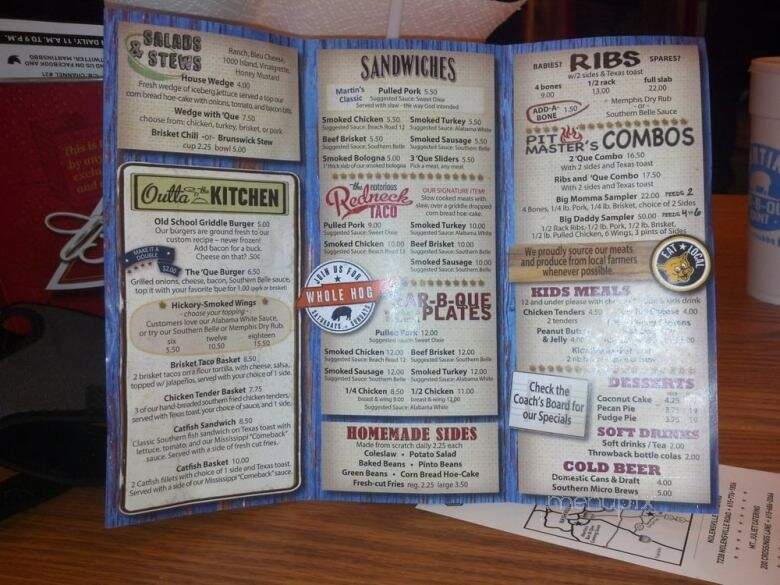 DAILY, 11 A.M. TO 9 P.M.
ND US ON FACEBOOK AND
TWITTER: MARTINSBBQ
SALADS
& STEWS
Ranch, Bleu Cheese,
1000 Island, Vinaigrette,
Honey Mustard
House Wedge 4.00
Fresh wedge of iceberg lettuce served a top our
corn bread hoe-cake with onions, tomato, and bacon bits.
Wedge with 'Que 7.50
choose from: chicken, turkey, brisket, or pork
Brisket Chili -or- Brunswick Stew
cup 2.25 bowl 5.00
Outta the KITCHEN
Old School Griddle Burger 5.00
Our burgers are ground fresh to our
custom recipe – never frozen!
Add bacon for a buck.
Cheese on that? 50¢
MAKE IT A
DOUBLE
$2.00
The 'Que Burger 6.50
Grilled onions, cheese, bacon, Southern Belle sauce,
top it with your favorite 'que for 1.00 (pork or brisket)
Hickory-Smoked Wings
- choose your topping -
Customers love our Alabama White Sauce,
or try our Southern Belle or Memphis Dry Rub.
six twelve eighteen
5.50 10.50 15.50
Brisket Taco Basket 8.50
2 brisket tacos on a flour tortilla, with cheese, salsa,
topped w/ jalapeños, served with your choice of 1 side.
Chicken Tender Basket 7.75
3 of our hand-breaded southern fried chicken tenders,
served with Texas toast, your choice of sauce, and 1 side.
Catfish Sandwich 8.50
Classic Southern fish sandwich on Texas toast with
lettuce, tomato, and our Mississippi "Comeback"
sauce. Served with a side of fresh cut fries.
Catfish Basket 10.00
2 Catfish fillets with choice of 1 side and Texas toast.
Served with a side of our Mississippi "Comeback" sauce.
SANDWICHES
Martin's
Classic
Pulled Pork 5.50
Suggested Sauce: Sweet Dixie
Served with slaw - the way God intended
Smoked Chicken 5.50 Smoked Turkey 5.50
Suggested Sauce: Beach Road 12 Suggested Sauce: Alabama White
Beef Brisket 5.50 Smoked Sausage 5.50
Suggested Sauce: Southern Belle Suggested Sauce: Southern Belle
Smoked Bologna 5.00 3 'Que Sliders 5.50
1" thick slab of our smoked bologna Pick a meat, any meat
the notorious
Redneck
TACO
OUR SIGNATURE ITEM!
Slow cooked meats with
slaw, over a griddle dropped
corn bread hoe-cake.
Pulled Pork 9.00 Smoked Turkey 10.00
Suggested Sauce: Sweet Dixie Suggested Sauce: Alabama White
Smoked Chicken 10.00 Beef Brisket 10.00
Suggested Sauce: Beach Road 12 Suggested Sauce: Southern Belle
Smoked Sausage 10.00
Suggested Sauce: Southern Belle
JOIN US FOR
WHOLE HOG
SATURDAYS
BAR-B-QUE
PLATES
Pulled Pork 12.00
Suggested Sauce: Sweet Dixie
Smoked Chicken 12.00 Beef Brisket 12.00
Suggested Sauce: Beach Road 12 Suggested Sauce: Southern Belle
Smoked Sausage 12.00 Smoked Turkey 12.00
Suggested Sauce: Southern Belle Suggested Sauce: Alabama White
1/4 Chicken 8.50 1/2 Chicken 11.00
breast & wing 9.00 breast & wing 12.00
Suggested Sauce: Alabama White
HOMEMADE SIDES
Made from scratch daily 2.25 each
Coleslaw • Potato Salad
Baked Beans • Pinto Beans
Green Beans • Corn Bread Hoe-Cake
Fresh-cut Fries reg. 2.25 large 3.50
BABIES? RIBS SPARES?
w/2 sides & Texas toast
4 bones 1/2 rack full slab
9.00 13.00 22.00
ADD-A-
BONE 1.50
Memphis Dry Rub
- or -
Southern Belle Sauce
PIT
MASTER'S COMBOS
2 'Que Combo 16.50
With 2 sides and Texas toast
Ribs and 'Que Combo 17.50
With 2 sides and Texas toast
Big Momma Sampler 22.00 FEEDS 2
4 Bones, 1/4 lb. Pork, 1/4 lb. Brisket, choice of 2 Sides
Big Daddy Sampler 50.00 FEEDS 4-6
1/2 Rack Ribs, 1/2 lb. Pork, 1/2 lb. Brisket,
1/2 lb. Pulled Chicken, 6 Wings, 3 pints of Sides
We proudly source our meats
and produce from local farmers
whenever possible.
EAT ★ LOCAL
KIDS MEALS
12 and under please with kids drink
Chicken Tenders 4.50
2 tenders
Peanut Butter
& Jelly
Check the
Coach's Board for
our Specials
DESSERTS
Coconut Cake 4.25
Pecan Pie 3.75
Fudge Pie 3.25
SOFT DRINKS
Soft drinks / Tea 2.00
Throwback bottle colas 2.00
COLD BEER
Domestic Cans & Draft 4.00
Southern Micro Brews 5.00
menupix
7238 NOLENSVILLE ROAD
MT. JULIET CATERING
200 CROSSINGS LANE